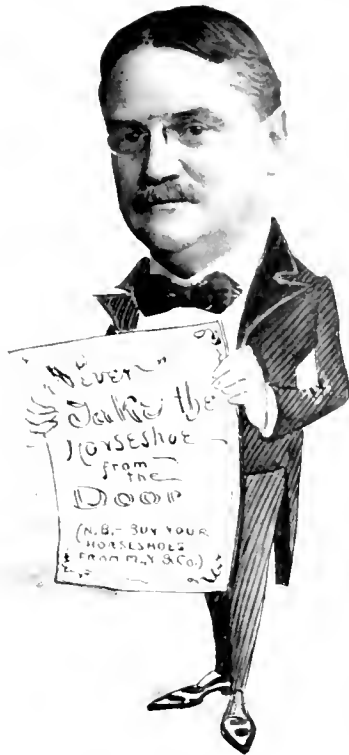 "Never"
Take the
Horseshoe
from
the
Door
(N.B.- BUY YOUR
HORSESHOES
FROM M,Y & Co.)